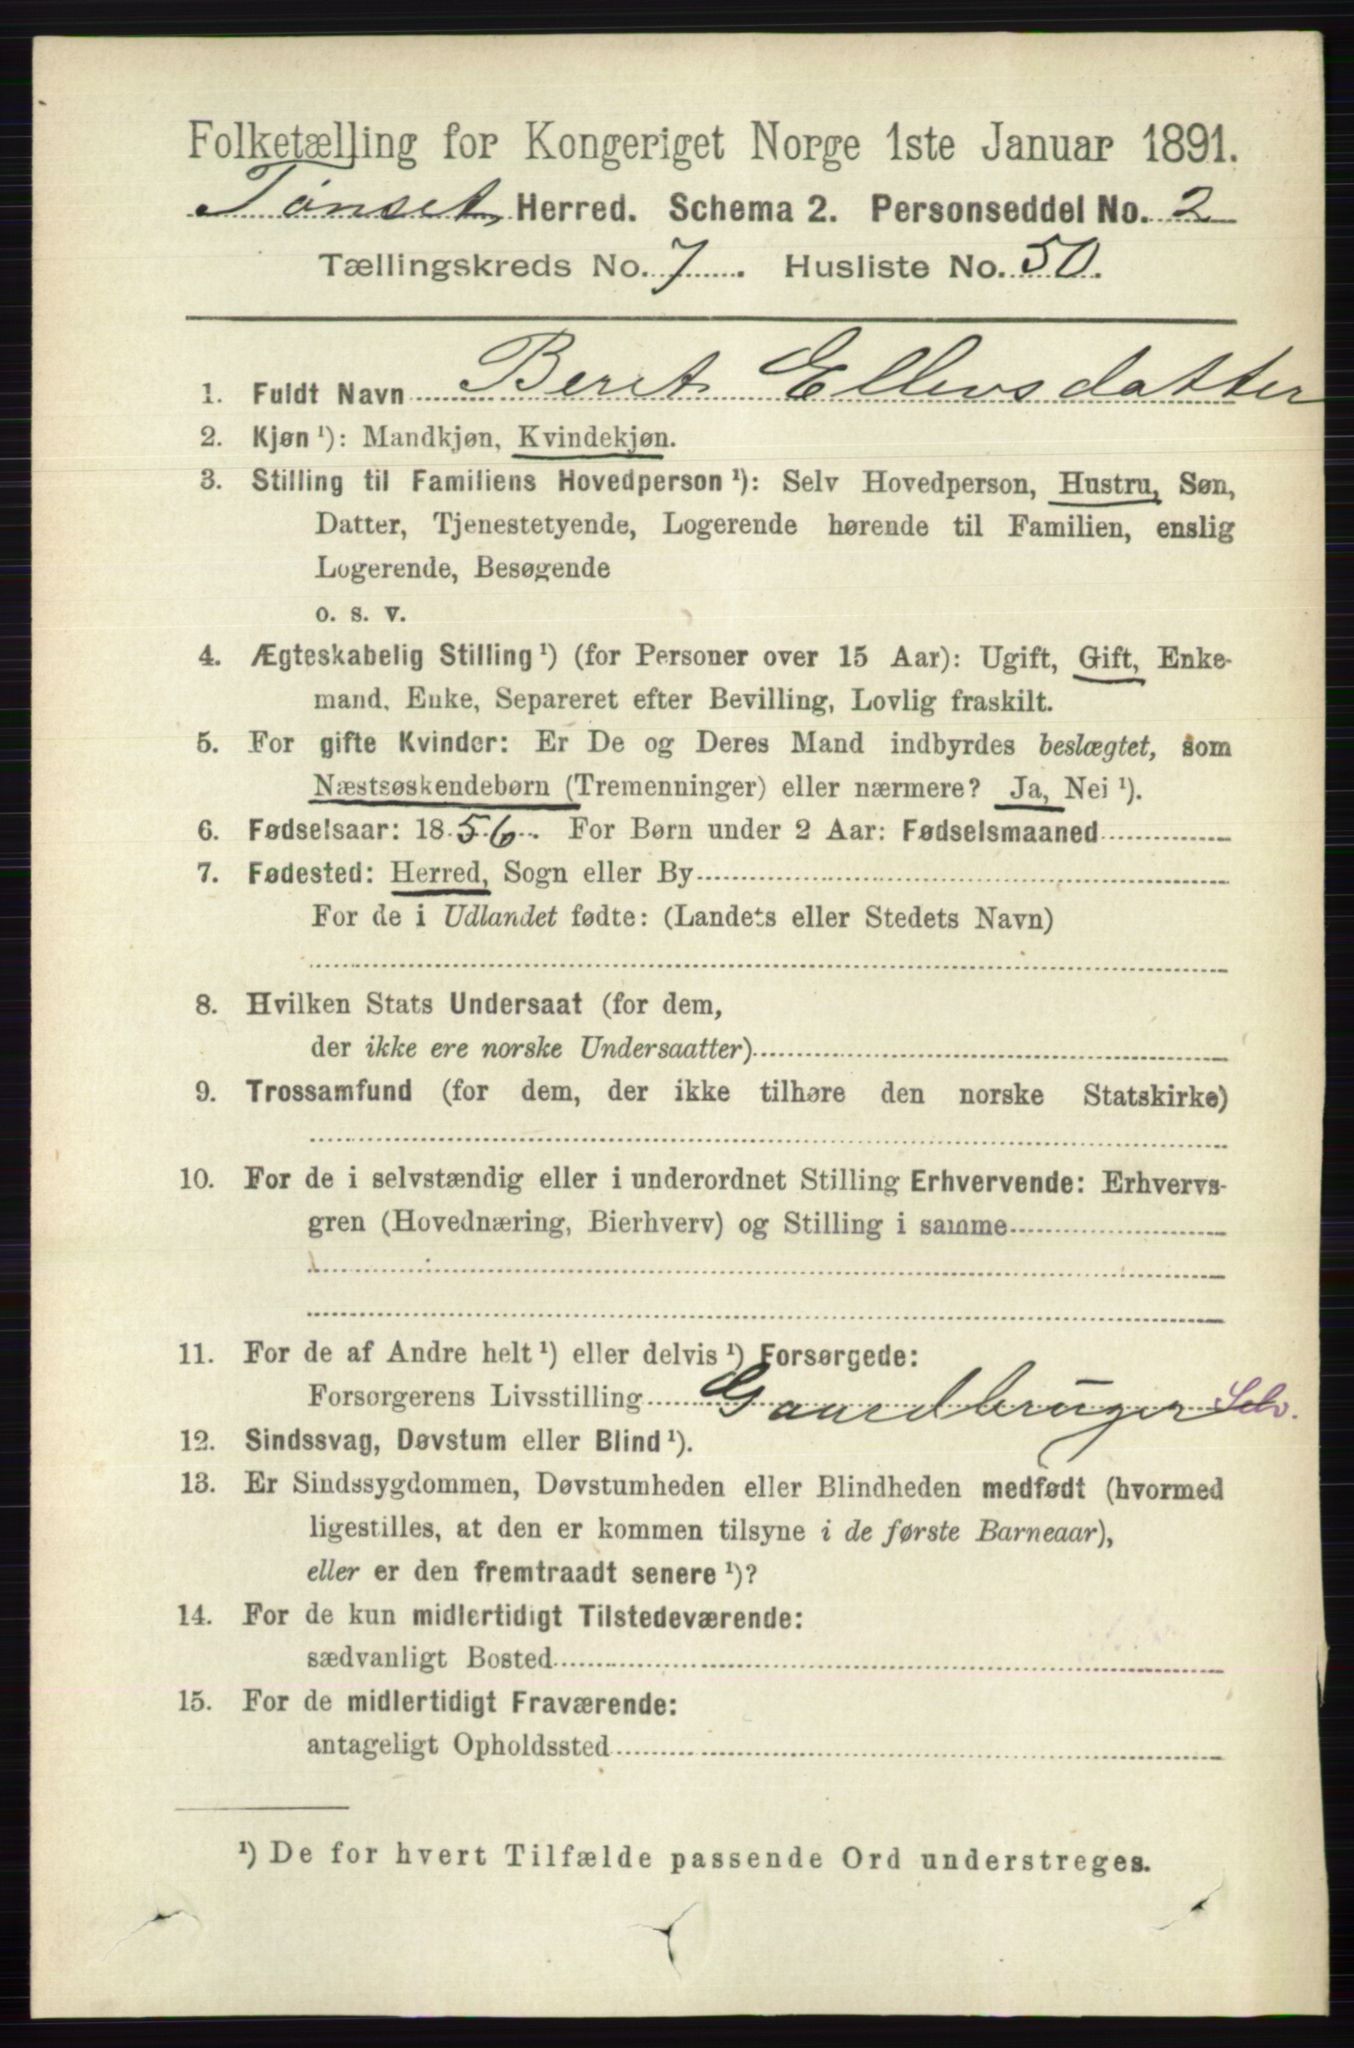 Folketælling for Kongeriget Norge 1ste Januar 1891.
Tønset Herred. Schema 2. Personseddel No. 2
Tællingskreds No. 7. Husliste No. 50.
1. Fuldt Navn Beret Ellevsdatter
2. Kjøn ¹): Mandkjøn, Kvindekjøn.
3. Stilling til Familiens Hovedperson ¹): Selv Hovedperson, Hustru, Søn,
Datter, Tjenestetyende, Logerende hørende til Familien, enslig
Logerende, Besøgende
o. s. v.
4. Ægteskabelig Stilling ¹) (for Personer over 15 Aar): Ugift, Gift, Enke-
mand, Enke, Separeret efter Bevilling, Lovlig fraskilt.
5. For gifte Kvinder: Er De og Deres Mand indbyrdes beslægtet, som
Næstsøskendebørn (Tremenninger) eller nærmere? Ja, Nei ¹).
6. Fødselsaar: 1856. For Børn under 2 Aar: Fødselsmaaned
7. Fødested: Herred, Sogn eller By
For de i Udlandet fødte: (Landets eller Stedets Navn)
8. Hvilken Stats Undersaat (for dem,
der ikke ere norske Undersaatter)
9. Trossamfund (for dem, der ikke tilhøre den norske Statskirke)
10. For de i selvstændig eller i underordnet Stilling Erhvervende: Erhvervs-
gren (Hovednæring, Bierhverv) og Stilling i samme
11. For de af Andre helt ¹) eller delvis ¹) Forsørgede:
Forsørgerens Livsstilling Gaardbruger Selv.
12. Sindssvag, Døvstum eller Blind ¹).
13. Er Sindssygdommen, Døvstumheden eller Blindheden medfødt (hvormed
ligestilles, at den er kommen tilsyne i de første Barneaar),
eller er den fremtraadt senere ¹)?
14. For de kun midlertidigt Tilstedeværende:
sædvanligt Bosted
15. For de midlertidigt Fraværende:
antageligt Opholdssted
¹) De for hvert Tilfælde passende Ord understreges.